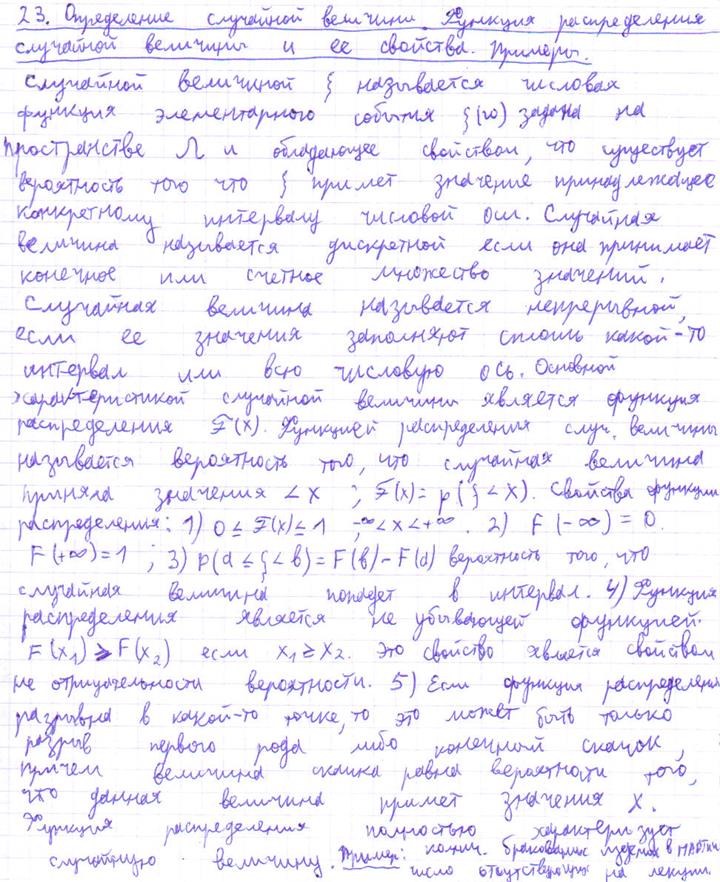 23. Определение случайной величины. Функция распределения
случайной величины и ее свойства. Примеры.
Случайной величиной ξ называется числовая
функция элементарного события ξ(ω) задана на
пространстве Ω и обладающее свойством, что существует
вероятность того что ξ примет значение принадлежащее
конкретному интервалу числовой оси. Случайная
величина называется дискретной если она принимает
конечное или счетное множество значений.
Случайная величина называется непрерывной,
если ее значения заполняют сплошь какой-то
интервал или всю числовую ось. Основной
характеристикой случайной величины является функция
распределения F(x). Функцией распределения случ. величины
называется вероятность того, что случайная величина
приняла значения < x ; F(x) = p(ξ < x). Свойства функции
распределения: 1) 0 ≤ F(x) ≤ 1 -∞ < x < +∞. 2) F(-∞) = 0.
F(+∞) = 1 ; 3) p(a ≤ ξ < b) = F(b) - F(a) вероятность того, что
случайная величина попадет в интервал. 4) Функция
распределения является не убывающей функцией.
F(x₁) ≥ F(x₂) если x₁ ≥ x₂. Это свойство является свойством
не отрицательности вероятности. 5) Если функция распределения
разрывна в какой-то точке, то это может быть только
разрыв первого рода либо конечный скачок,
причем величина скачка равна вероятности того,
что данная величина примет значения x.
Функция распределения полностью характеризует
случайную величину. Пример: колич. бракованых изделий в партии
число отсутствующих на лекции.